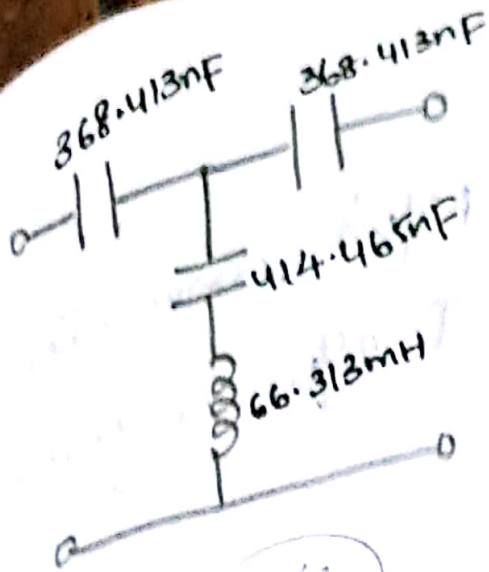 368.413nF
368.413nF
414.465nF
66.313mH